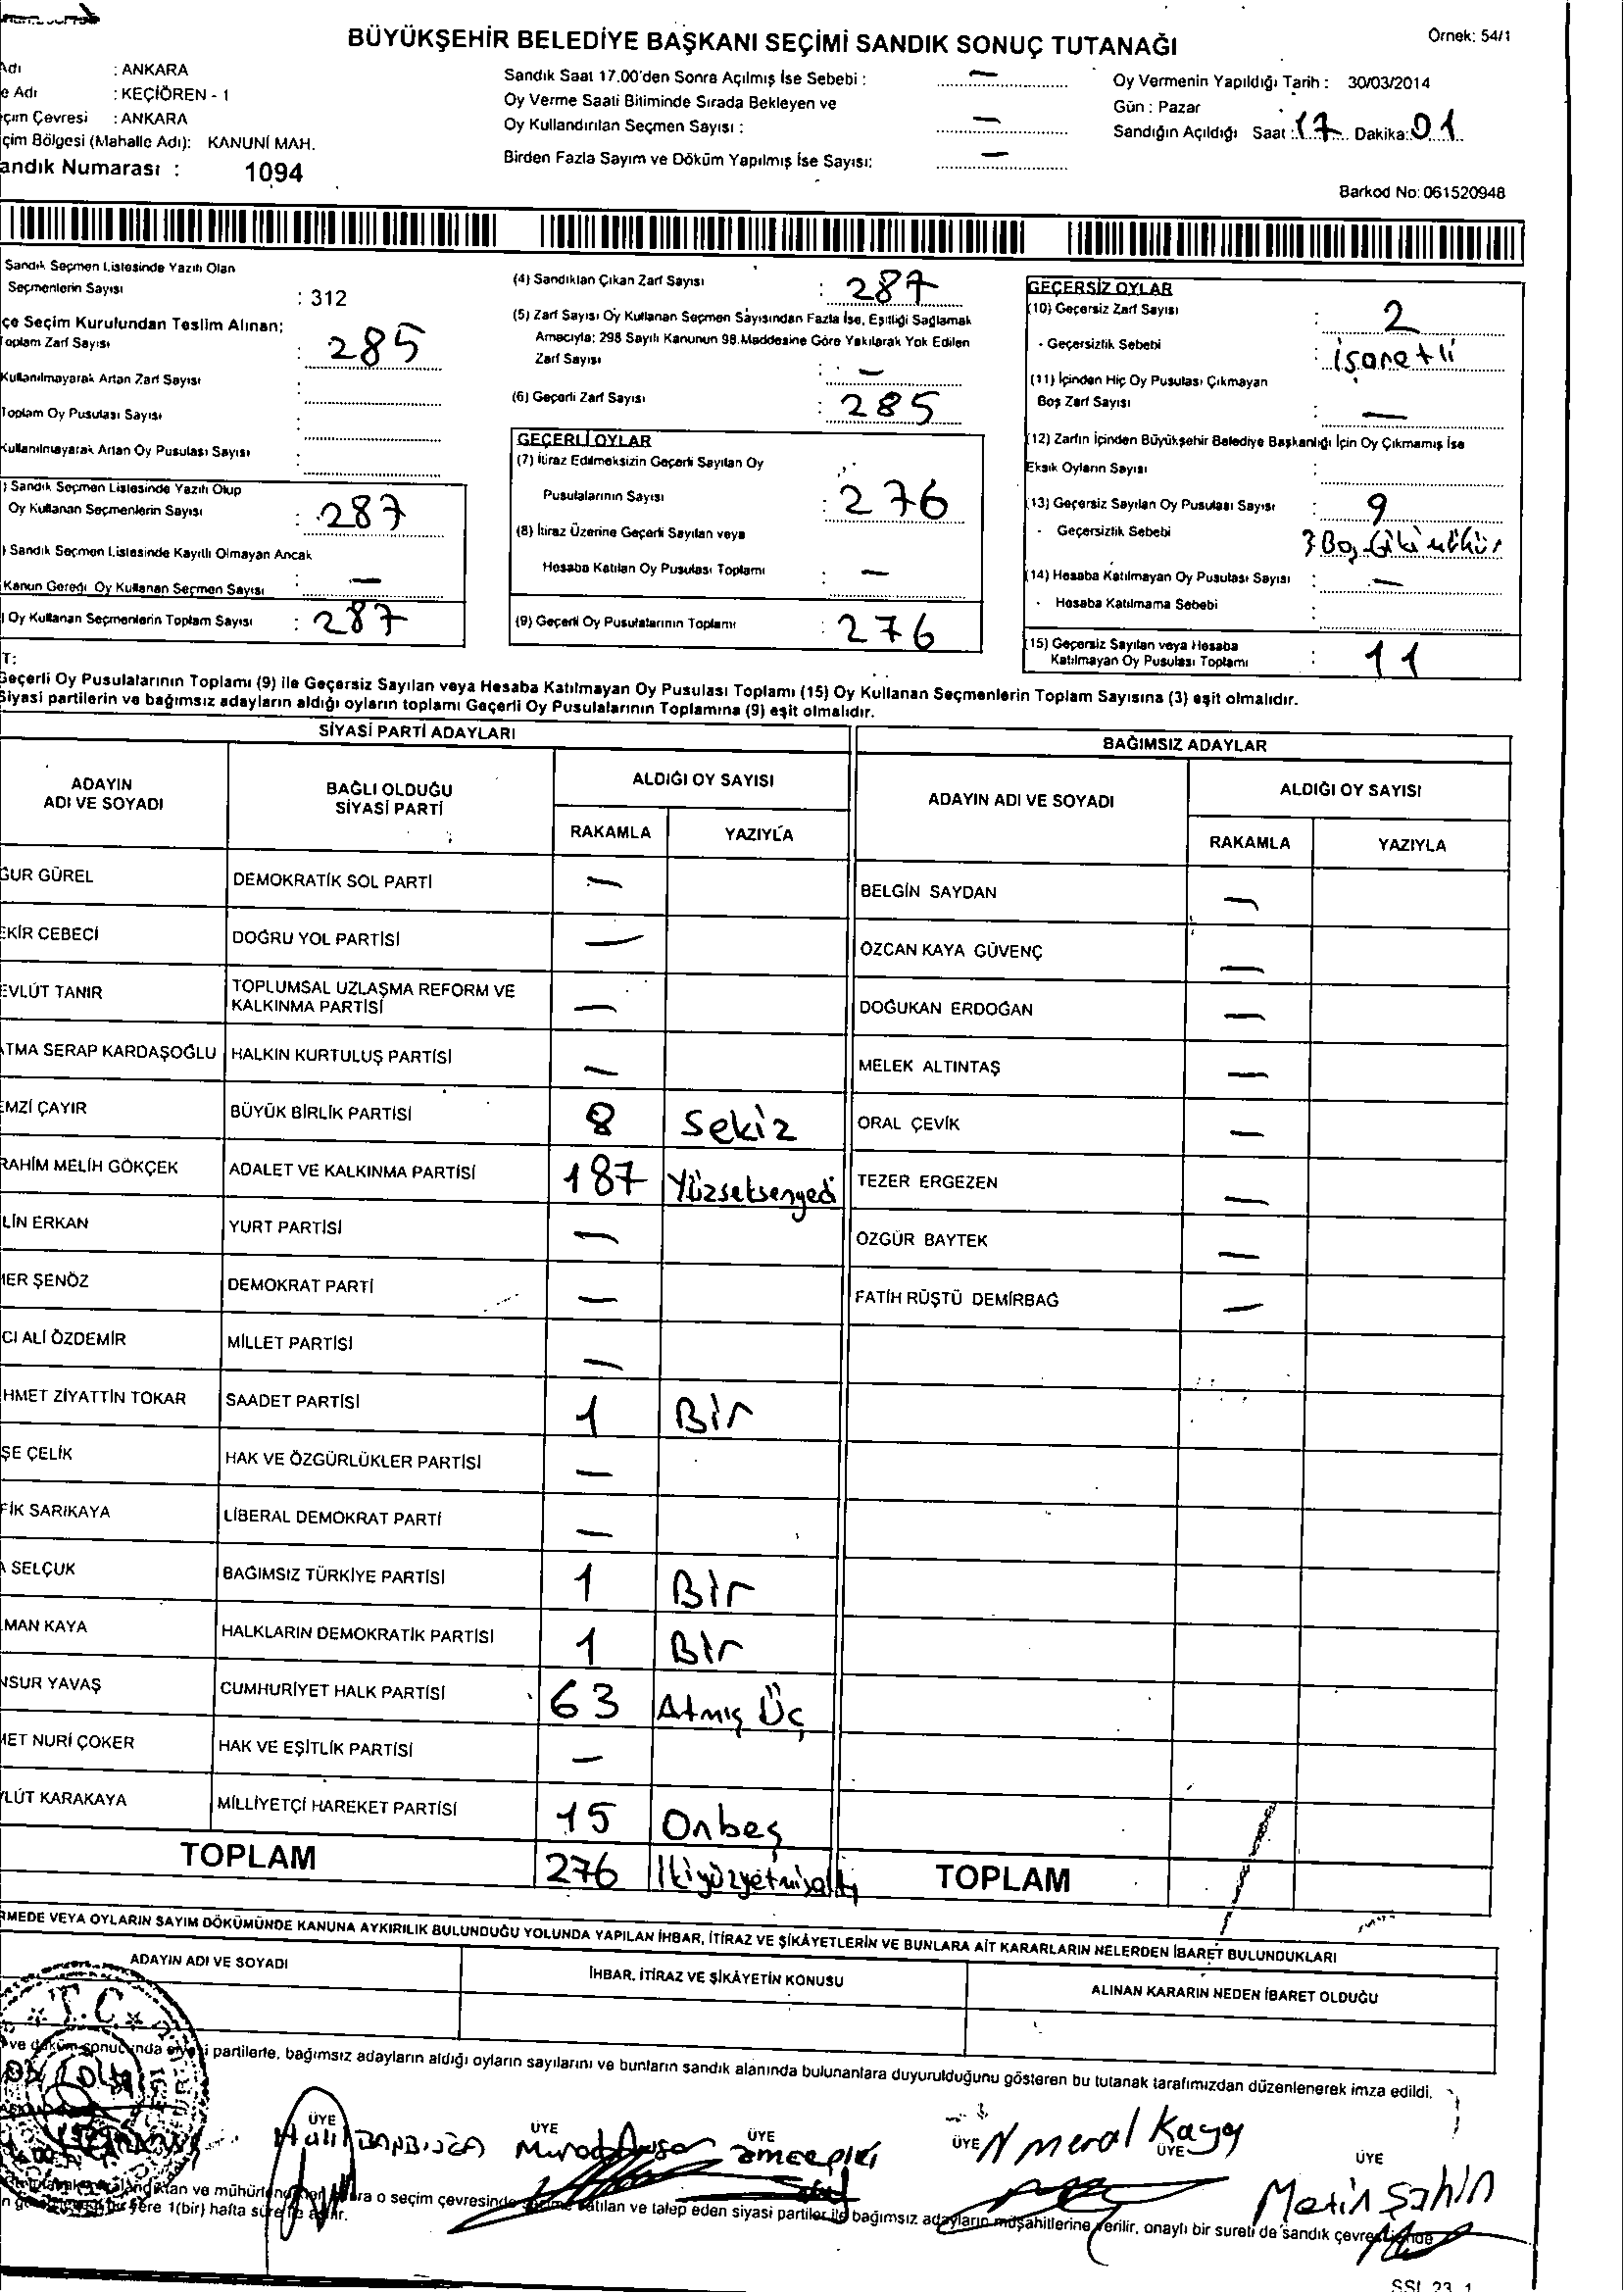 BÜYÜKŞEHİR BELEDİYE BAŞKANI SEÇİMİ SANDIK SONUÇ TUTANAĞI
Örnek: 54/1
Adı : ANKARA
e Adı : KEÇİÖREN - 1
çim Çevresi : ANKARA
çim Bölgesi (Mahalle Adı): KANUNİ MAH.
andık Numarası : 1094
Sandık Saat 17.00'den Sonra Açılmış İse Sebebi : —
Oy Verme Saati Bitiminde Sırada Bekleyen ve
Oy Kullandırılan Seçmen Sayısı : —
Birden Fazla Sayım ve Döküm Yapılmış İse Sayısı: —
Oy Vermenin Yapıldığı Tarih : 30/03/2014
Gün : Pazar
Sandığın Açıldığı Saat : 17 Dakika: 01
Barkod No: 061520948
Sandık Seçmen Listesinde Yazılı Olan
Seçmenlerin Sayısı : 312
çe Seçim Kurulundan Teslim Alınan;
Toplam Zarf Sayısı : 285
Kullanılmayarak Artan Zarf Sayısı :
Toplam Oy Pusulası Sayısı :
Kullanılmayarak Artan Oy Pusulası Sayısı :
) Sandık Seçmen Listesinde Yazılı Olup
Oy Kullanan Seçmenlerin Sayısı : 287
) Sandık Seçmen Listesinde Kayıtlı Olmayan Ancak
Kanun Gereği Oy Kullanan Seçmen Sayısı : —
) Oy Kullanan Seçmenlerin Toplam Sayısı : 287
(4) Sandıktan Çıkan Zarf Sayısı : 287
(5) Zarf Sayısı Oy Kullanan Seçmen Sayısından Fazla İse, Eşitliği Sağlamak
Amacıyla; 298 Sayılı Kanunun 98.Maddesine Göre Yakılarak Yok Edilen
Zarf Sayısı : —
(6) Geçerli Zarf Sayısı : 285
GEÇERLİ OYLAR
(7) İtiraz Edilmeksizin Geçerli Sayılan Oy
Pusulalarının Sayısı : 276
(8) İtiraz Üzerine Geçerli Sayılan veya
Hesaba Katılan Oy Pusulası Toplamı : —
(9) Geçerli Oy Pusulalarının Toplamı : 276
GEÇERSİZ OYLAR
(10) Geçersiz Zarf Sayısı : 2
- Geçersizlik Sebebi : işaretli
(11) İçinden Hiç Oy Pusulası Çıkmayan
Boş Zarf Sayısı : —
(12) Zarfın İçinden Büyükşehir Belediye Başkanlığı İçin Oy Çıkmamış İse
Eksik Oyların Sayısı :
(13) Geçersiz Sayılan Oy Pusulası Sayısı : 9
- Geçersizlik Sebebi 3 Boş
(14) Hesaba Katılmayan Oy Pusulası Sayısı : —
- Hesaba Katılmama Sebebi :
(15) Geçersiz Sayılan veya Hesaba
Katılmayan Oy Pusulası Toplamı : 11
T:
Geçerli Oy Pusulalarının Toplamı (9) ile Geçersiz Sayılan veya Hesaba Katılmayan Oy Pusulası Toplamı (15) Oy Kullanan Seçmenlerin Toplam Sayısına (3) eşit olmalıdır.
Siyasi partilerin ve bağımsız adayların aldığı oyların toplamı Geçerli Oy Pusulalarının Toplamına (9) eşit olmalıdır.
SİYASİ PARTİ ADAYLARI
ADAYIN ADI VE SOYADI BAĞLI OLDUĞU SİYASİ PARTİ ALDIĞI OY SAYISI
RAKAMLA YAZIYLA
GUR GÜREL DEMOKRATİK SOL PARTİ —
EKİR CEBECİ DOĞRU YOL PARTİSİ —
EVLÜT TANIR TOPLUMSAL UZLAŞMA REFORM VE KALKINMA PARTİSİ —
ATMA SERAP KARDAŞOĞLU HALKIN KURTULUŞ PARTİSİ —
EMZİ ÇAYIR BÜYÜK BİRLİK PARTİSİ 8 Sekiz
RAHİM MELİH GÖKÇEK ADALET VE KALKINMA PARTİSİ 187 Yüzseksenyedi
LİN ERKAN YURT PARTİSİ —
MER ŞENÖZ DEMOKRAT PARTİ —
CI ALİ ÖZDEMİR MİLLET PARTİSİ —
HMET ZİYATTİN TOKAR SAADET PARTİSİ 1 Bir
ŞE ÇELİK HAK VE ÖZGÜRLÜKLER PARTİSİ —
FİK SARIKAYA LİBERAL DEMOKRAT PARTİ —
A SELÇUK BAĞIMSIZ TÜRKİYE PARTİSİ 1 Bir
MAN KAYA HALKLARIN DEMOKRATİK PARTİSİ 1 Bir
NSUR YAVAŞ CUMHURİYET HALK PARTİSİ 63 Atmış Üç
MET NURİ ÇOKER HAK VE EŞİTLİK PARTİSİ —
VLÜT KARAKAYA MİLLİYETÇİ HAREKET PARTİSİ 15 Onbeş
TOPLAM 276 İkiyüzyetmişaltı
BAĞIMSIZ ADAYLAR
ADAYIN ADI VE SOYADI ALDIĞI OY SAYISI
RAKAMLA YAZIYLA
BELGİN SAYDAN —
OZCAN KAYA GÜVENÇ —
DOĞUKAN ERDOĞAN —
MELEK ALTINTAŞ —
ORAL ÇEVİK —
TEZER ERGEZEN —
OZGÜR BAYTEK —
FATİH RÜŞTÜ DEMİRBAĞ —
TOPLAM
RMEDE VEYA OYLARIN SAYIM DÖKÜMÜNDE KANUNA AYKIRILIK BULUNDUĞU YOLUNDA YAPILAN İHBAR, İTİRAZ VE ŞİKÂYETLERİN VE BUNLARA AİT KARARLARIN NELERDEN İBARET BULUNDUKLARI
ADAYIN ADI VE SOYADI İHBAR, İTİRAZ VE ŞİKÂYETİN KONUSU ALINAN KARARIN NEDEN İBARET OLDUĞU
T.C.
ve döküm sonucunda siyasi partilerle, bağımsız adayların aldığı oyların sayılarını ve bunların sandık alanında bulunanlara duyurulduğunu gösteren bu tutanak tarafımızdan düzenlenerek imza edildi.
ÜYE ÜYE ÜYE ÜYE ÜYE ÜYE
Halil Murat Meral Kaya
Metin Şahin
ve mühürlendikten sonra o seçim çevresinde seçime katılan ve talep eden siyasi partiler ile bağımsız adayların müşahitlerine verilir, onaylı bir sureti de sandık çevresinde
bir yere 1(bir) hafta süre ile asılır.